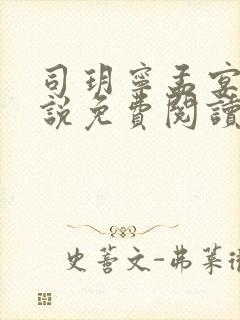 司玥寧孟宴
說免費閱讀
史蓄文-弗萊